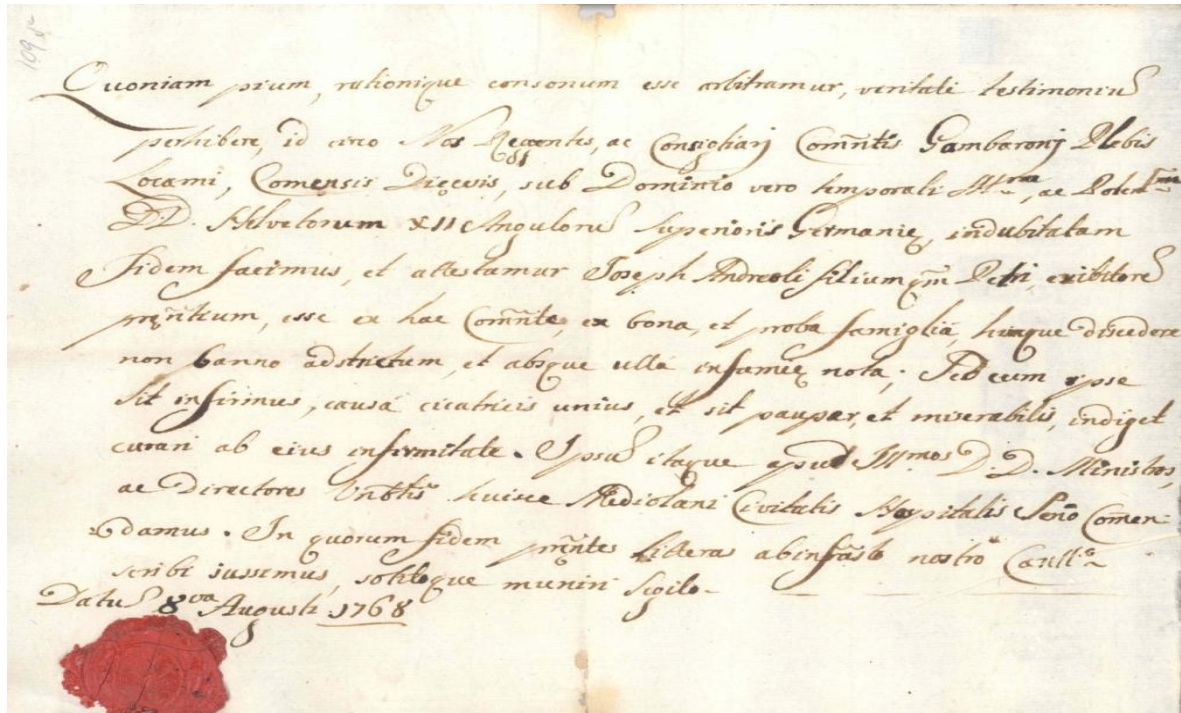 109
Quoniam pium, rationique consonum esse arbitramur, veritati testimoniũ
perhibere, id circo Nos Regentes, ac Consigliarj Com̃ntis Gambaronj Plebis
Locarni, Comensis Diȩcesis, sub Dominio vero temporali Ill.mor, ac Potent.mor
DD. Helvetorum XII Angulorũ superioris Germaniȩ, indubitatam
fidem facimus, et attestamur Joseph Andreoli filium qm̃ Petri, exibitorẽ
prȩñtium, esse ex hac Com̃nte, ex bona, et proba famiglia, hincque discedere
non banno adstrictum, et absque ulla infamiȩ nota; Sed cum ipse
sit infirmus, causa cicatricis unius, et sit pauper, et miserabilis, indiget
curari ab eius infirmitate. Ipsũ itaque apud Ill.mos D.D. Ministros,
ac Directores huisce Mediolani Civitatis Hospitalis Comen
damus. In quorum fidem prñntes litteras ab infrãsto nostro Canll.o
scribi iussimus, solitoque muniri sigilo.
Datũ 8va Augusti 1768